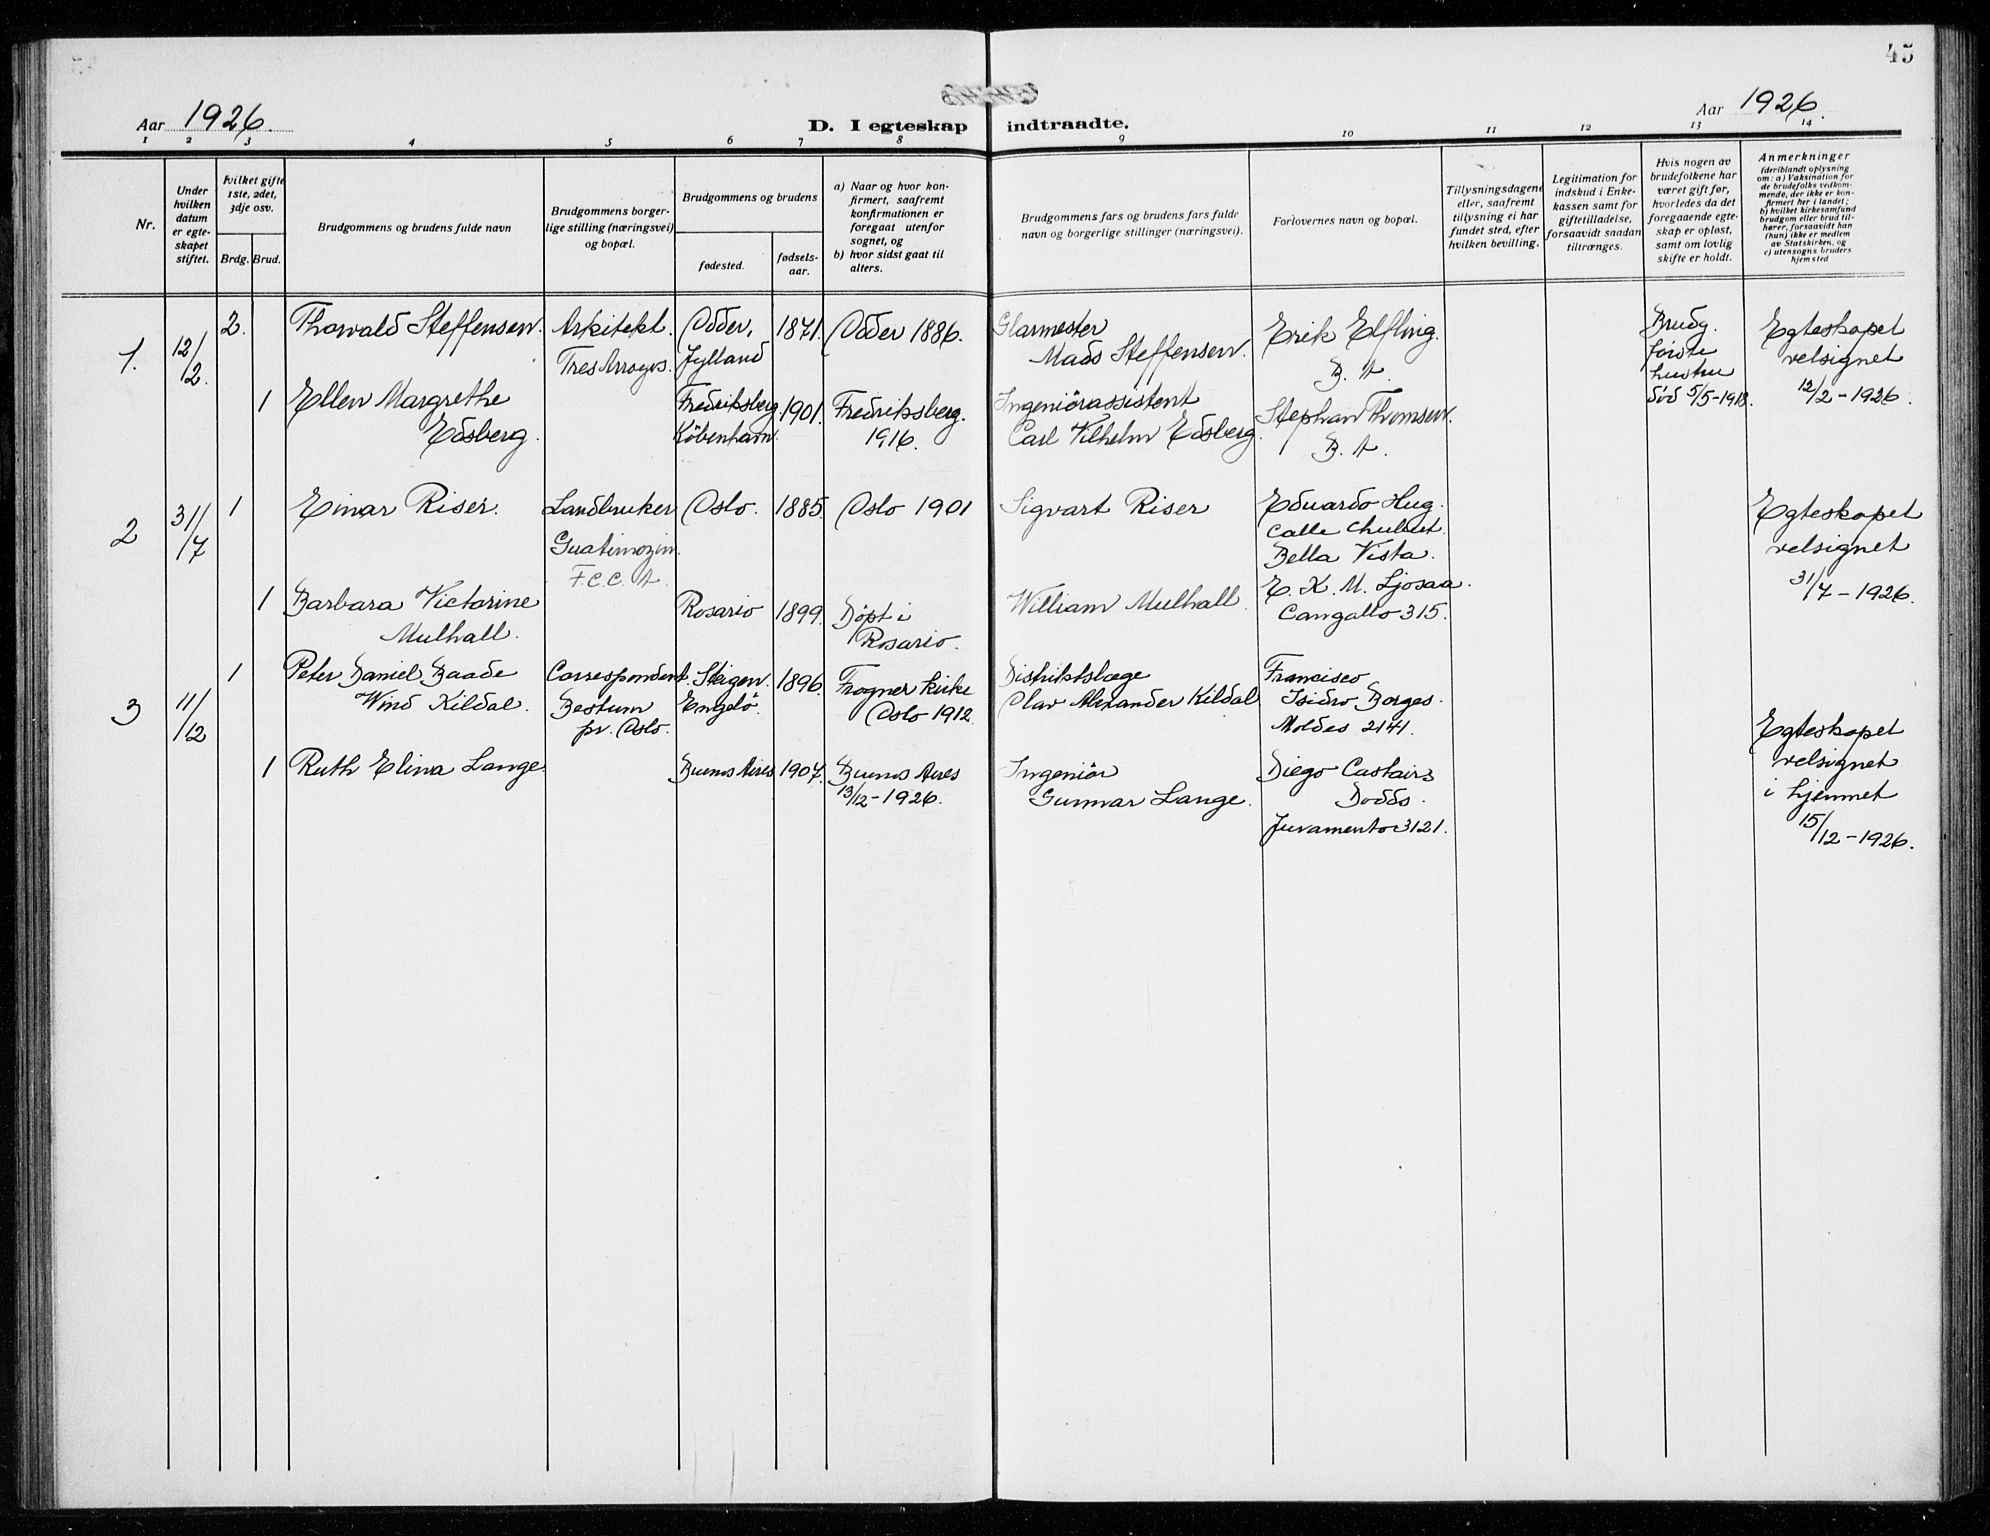 45
Aar 1926.
D. I egteskap indtraadte.
Aar 1926.
1 2 3 4 5 6 7 8 9 10 11 12 13 14
Nr.
Under
hvilken
datum
er egte-
skapet
stiftet.
hvilket gifte
1ste, 2det,
3dje osv.
Brdg. Brud.
Brudgommens og brudens fulde navn
Brudgommens borger-
lige stilling (næringsvei)
og bopæl.
Brudgommens og brudens
fødested.
fødsels-
aar.
a) Naar og hvor kon-
firmert, saafremt
konfirmationen er
foregaat utenfor
sognet, og
b) hvor sidst gaat til
alters.
Brudgommens fars og brudens fars fulde
navn og borgerlige stillinger (næringsvei).
Forlovernes navn og bopæl.
Tillysningsdagene
eller, saafremt
tillysning ei har
fundet sted, efter
hvilken bevilling.
Legitimation for
indskud i Enke-
kassen samt for
giftetilladelse,
forsaavidt saadan
tiltrænges.
Hvis nogen av
brudefolkene har
været gift før,
hvorledes da det
foregaaende egte-
skap er opløst,
samt om lovlig
skifte er holdt.
Anmerkninger
(deriblandt oplysning
om: a) Vaksination for
de brudefolks vedkom-
mende, der ikke er kon-
firmert her i landet;
b) hvilket kirkesamfund
brudgom eller brud til-
hører, forsaavidt han
(hun) ikke er medlem
av Statskirken, og
c) utensogns bruders
hjemsted
1.
12/2.
2.
Thorvald Steffensen.
Arkitekt.
Tres Arroyos.
Odder,
Jylland
1871.
Odder 1886.
Glarmester
Mads Steffensen.
Erik Elfling.
B. A.
Brudg.
første
hustru
død 5/5-1918.
Egteskapet
velsignet
12/2-1926.
1
Ellen Margrethe
Edsberg.
Fredriksberg
København.
1901.
Fredriksberg.
1916.
Ingeniörassistent
Carl Vilhelm Edsberg.
Stephan Thomsen.
B. A.
2
31/7
1
Einar Riser.
Landbruker
Guatimozin.
F.C.C.A.
Oslo.
1885.
Oslo 1901
Sigvart Riser
Eduardo Hug.
Calle Chubut.
Bella Vista.
Egteskapet
velsignet
31/7-1926.
1
Barbara Victorine
Mulhall.
Rosario
1899.
Døpt i
Rosario.
William Mulhall.
E. K. M. Ljosaa.
Cangallo 315.
3
11/12
1
Peter Daniel Baade
Wind Kildal.
Correspondent.
Bestum
pr. Oslo.
Steigen.
Engelö.
1896.
Frogner kirke
Oslo 1912.
Distriktslæge
Olav Alexander Kildal.
Francisco
Isidro Borges.
Moldes 2141.
Egteskapet
velsignet
i hjemmet
15/12-1926.
1
Ruth Elina Lange.
Buenos Aires
1907.
Buenos Aires
13/12-1926.
Ingeniör
Gunnar Lange.
Diego Castairs
Dodds.
Juramento 3121.